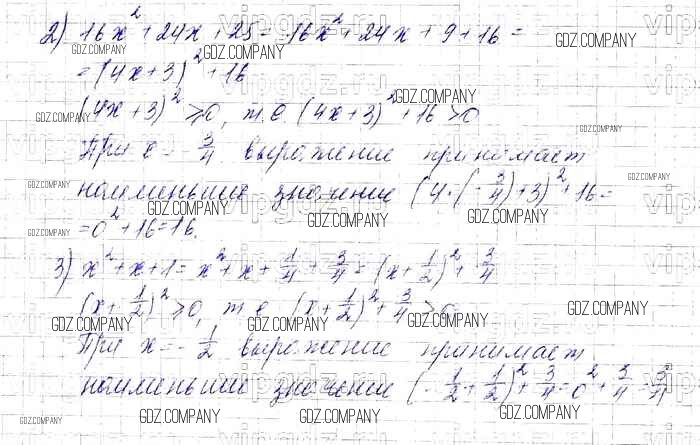 2) 16x² + 24x + 25 = 16x² + 24x + 9 + 16 =
= (4x+3)² + 16
(4x+3)² ≥ 0, т.е. (4x+3)² + 16 > 0
При x = -3/4 выражение принимает
наименьшие значение (4·(-3/4)+3)² + 16 =
= 0² + 16 = 16.
3) x² + x + 1 = x² + x + 1/4 + 3/4 = (x + 1/2)² + 3/4
(x + 1/2)² ≥ 0, т.е. (x + 1/2)² + 3/4 > 0
При x = -1/2 выражение принимает
наименьшие значение (-1/2 + 1/2)² + 3/4 = 0² + 3/4 = 3/4
GDZ.COMPANY
vipgdz.ru